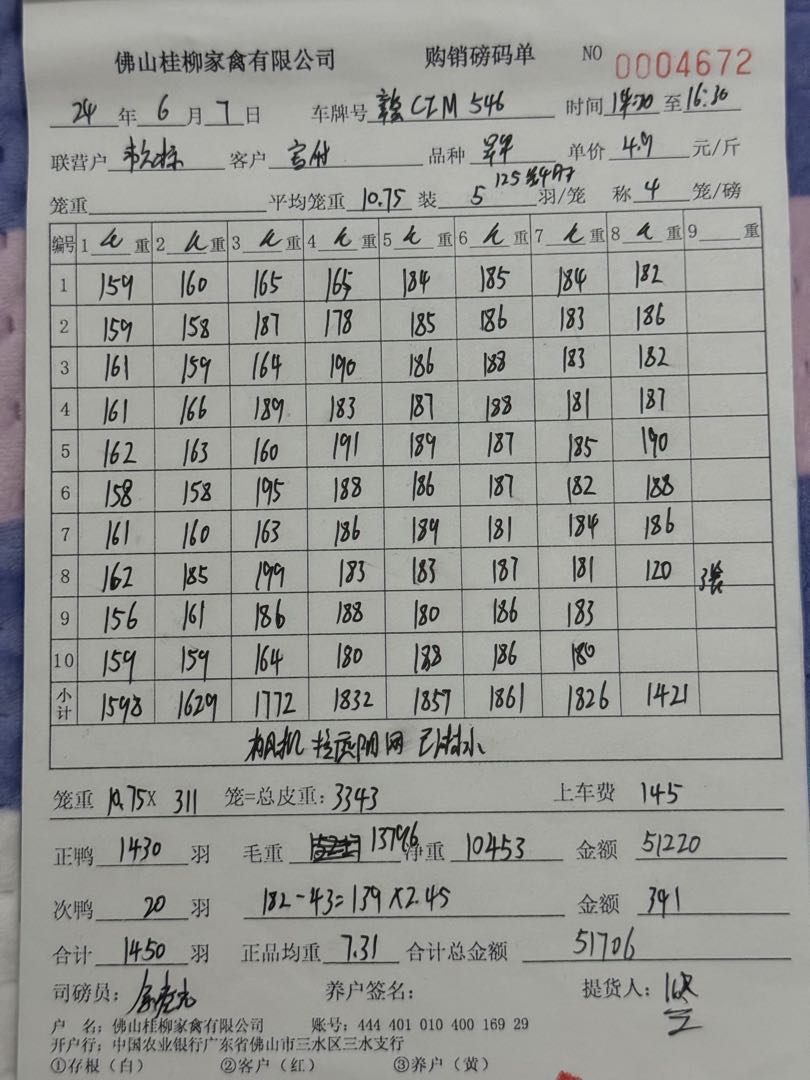 佛山桂柳家禽有限公司 购销磅码单 NO 0004672
24 年 6 月 7 日 车牌号 CZM 546 时间 14:20 至 16:30
联营户 客户 品种 单价 4.9 元/斤
125
笼重 平均笼重 10.75 装 5 羽/笼 称 4 笼/磅
编号 1 重 2 重 3 重 4 重 5 重 6 重 7 重 8 重 9 重
1 159 160 165 165 184 185 184 182
2 159 158 187 178 185 186 183 186
3 161 159 164 190 186 188 183 182
4 161 166 189 183 187 188 181 187
5 162 163 160 191 189 187 185 190
6 158 158 195 188 186 187 182 188
7 161 160 163 186 189 181 184 186
8 162 185 199 183 183 187 181 120
9 156 161 186 188 180 186 183
10 159 159 164 180 188 186 180
小计 1598 1629 1772 1832 1857 1861 1826 1421
笼重 10.75X 311 笼=总皮重: 3343 上车费 145
正鸭 1430 羽 毛重 13796 净重 10453 金额 51220
次鸭 20 羽 182-43=139X2.45 金额 341
合计 1450 羽 正品均重 7.31 合计总金额 51706
司磅员: 养户签名: 提货人:
户 名: 佛山桂柳家禽有限公司 账号: 444 401 010 400 169 29
开户行: 中国农业银行广东省佛山市三水区三水支行
①存根（白） ②客户（红） ③养户（黄）